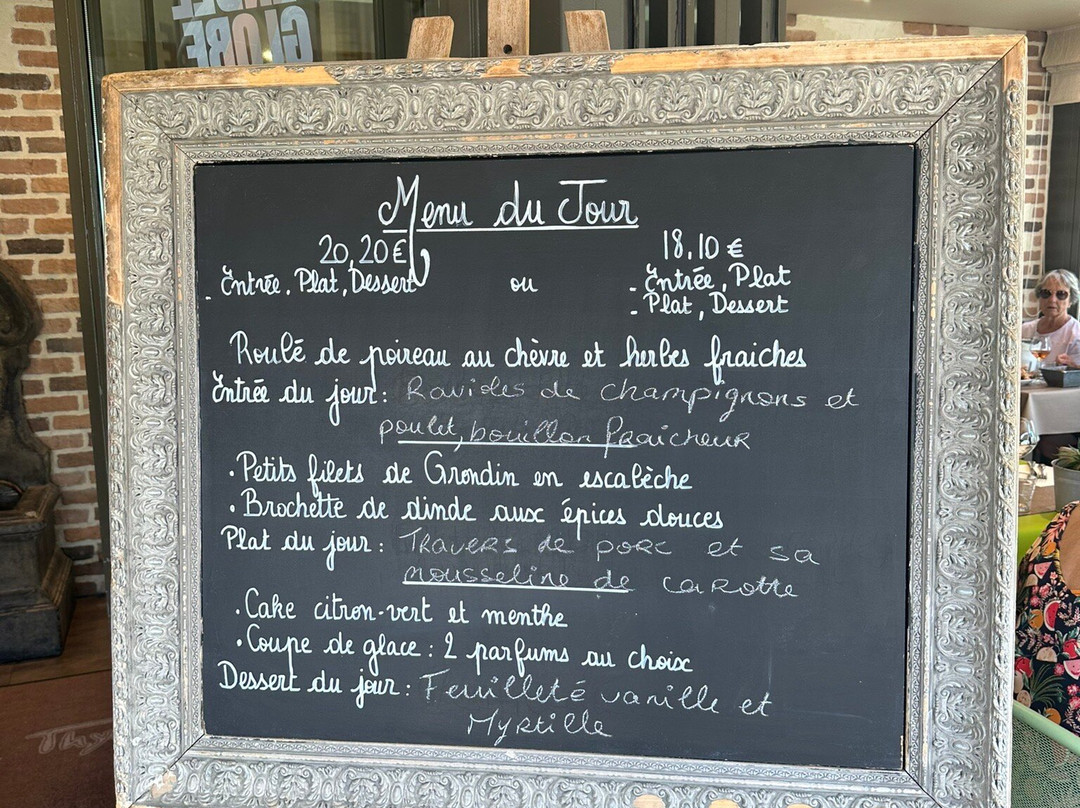 GLOBE
Menu du Jour
20,20€
18,10 €
- Entrée, Plat, Dessert
ou
- Entrée, Plat
- Plat, Dessert
Roulé de poireau au chèvre et herbes fraiches
Entrée du jour : Ravioles de champignons et
poulet, bouillon fraicheur
• Petits filets de Grondin en escabèche
• Brochette de dinde aux épices douces
Plat du jour : Travers de porc et sa
mousseline de carotte
• Cake citron-vert et menthe
• Coupe de glace : 2 parfums au choix
Dessert du jour : Feuilleté vanille et
Myrtille